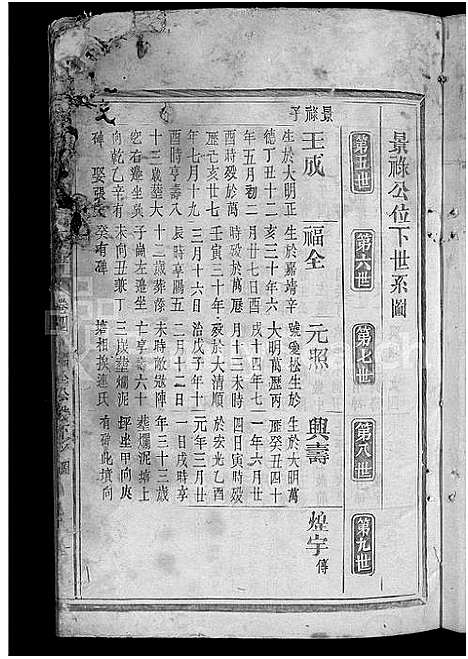 景祿公位下世系圖
第五世
第六世
第七世
第八世
第九世
景祿子
王成
生於大明正
德丁丑十二
年五月初二
酉時歿於萬
歷乙亥廿七
年七月十九
酉時亨壽八
十三歲塟大
窆右邊坐巽
向乾乙辛有
碑 娶張
福全
生於嘉靖辛
亥三十年六
月廿七日酉
時歿於萬歷
壬寅三十年
三月十六日
辰時亨陽五
十二歲塟條
子崗左邊坐
未向丑兼丁
癸有碑
元照
號愛松生於
大明萬歷丙
戌十四年七
月十三未時
歿於大清順
治戊子年十
二月十二日
未時耐敵陣
亡亨壽六十
三歲塟爛泥
塆相挨連氏
興壽
生於大明萬
曆癸丑四十
一年六月廿
四日寅時歿
於宏光乙酉
元年三月廿
一日戌時亨
年三十三歲
塟爛泥塆上
坪連甲向庚
有碑此墳向
煌宇
傳